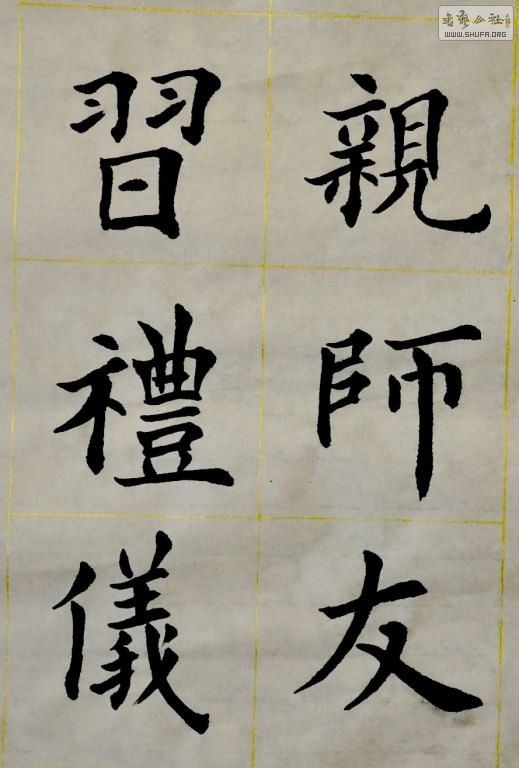 親師友
習禮儀
书艺公社
WWW.SHUFA.ORG